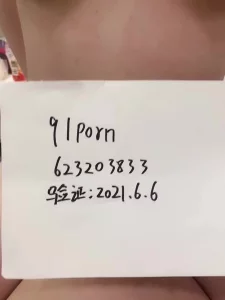 91porn
623203833
验证:2021.6.6